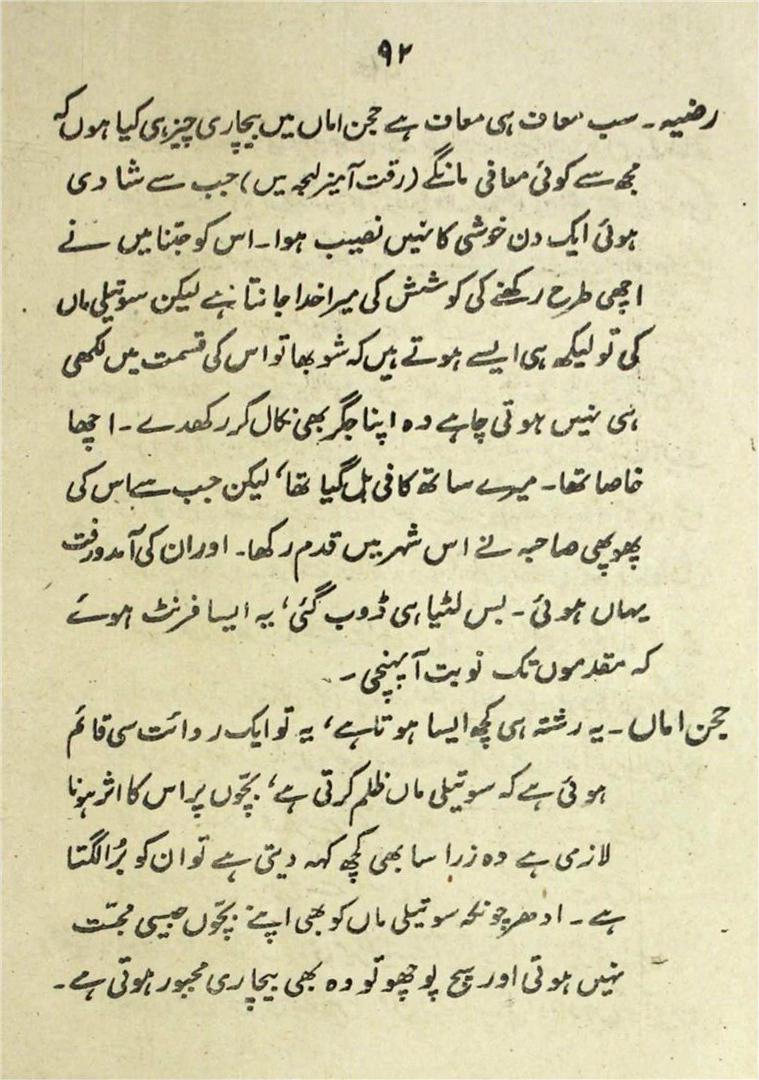 ۹۲
رضیہ۔ سب معاف ہی معاف ہے حجن اماں میں بیچاری چیز ہی کیا ہوں کہ
مجھ سے کوئی معافی مانگے (رقت آمیز لہجہ میں) جب سے شادی
ہوئی ایک دن خوشی کا نہیں نصیب ہوا۔ اس کو جتنا میں نے
اچھی طرح رکھنے کی کوشش کی میرا خدا جانتا ہے لیکن سوتیلی ماں
کی تو لیکھ ہی ایسے ہوتے ہیں کہ شوبھا تو اس کی قسمت میں لکھی
ہی نہیں ہوتی چاہے وہ اپنا جگر بھی نکال کر رکھدے۔ اچھا
خاصا تھا۔ میرے ساتھ کافی ہل گیا تھا، لیکن جب سے اس کی
پھوپھی صاحبہ نے اس شہر میں قدم رکھا۔ اور ان کی آمدورفت
یہاں ہوئی۔ بس لٹیا ہی ڈوب گئی، یہ ایسا فرنٹ ہوئے
کہ مقدموں تک نوبت آپہنچی۔
حجن اماں۔ یہ رشتہ ہی کچھ ایسا ہوتا ہے، یہ تو ایک روائت سی قائم
ہوئی ہے کہ سوتیلی ماں ظلم کرتی ہے، بچّوں پر اس کا اثر ہونا
لازمی ہے وہ زرا سا بھی کچھ کہہ دیتی ہے تو ان کو بُرا لگتا
ہے۔ ادھر چونکہ سوتیلی ماں کو بھی اپنے بچّوں جیسی محبّت
نہیں ہوتی اور سچ پوچھو تو وہ بھی بیچاری مجبور ہوتی ہے۔